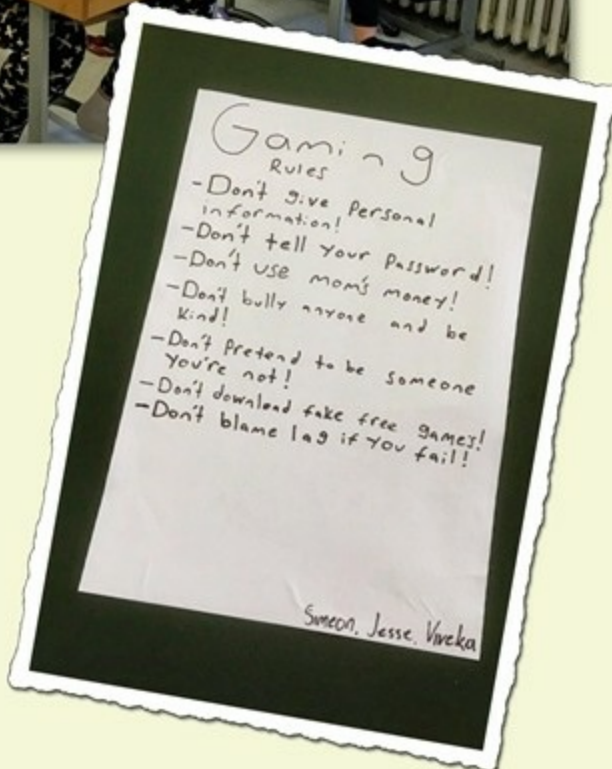 Gaming
Rules
-Don't give Personal
information!
-Don't tell Your Password!
-Don't use mom's money!
-Don't bully anyone and be
kind!
-Don't Pretend to be someone
You're not!
-Don't download fake free games!
-Don't blame lag if You fail!
Simeon, Jesse, Viveka